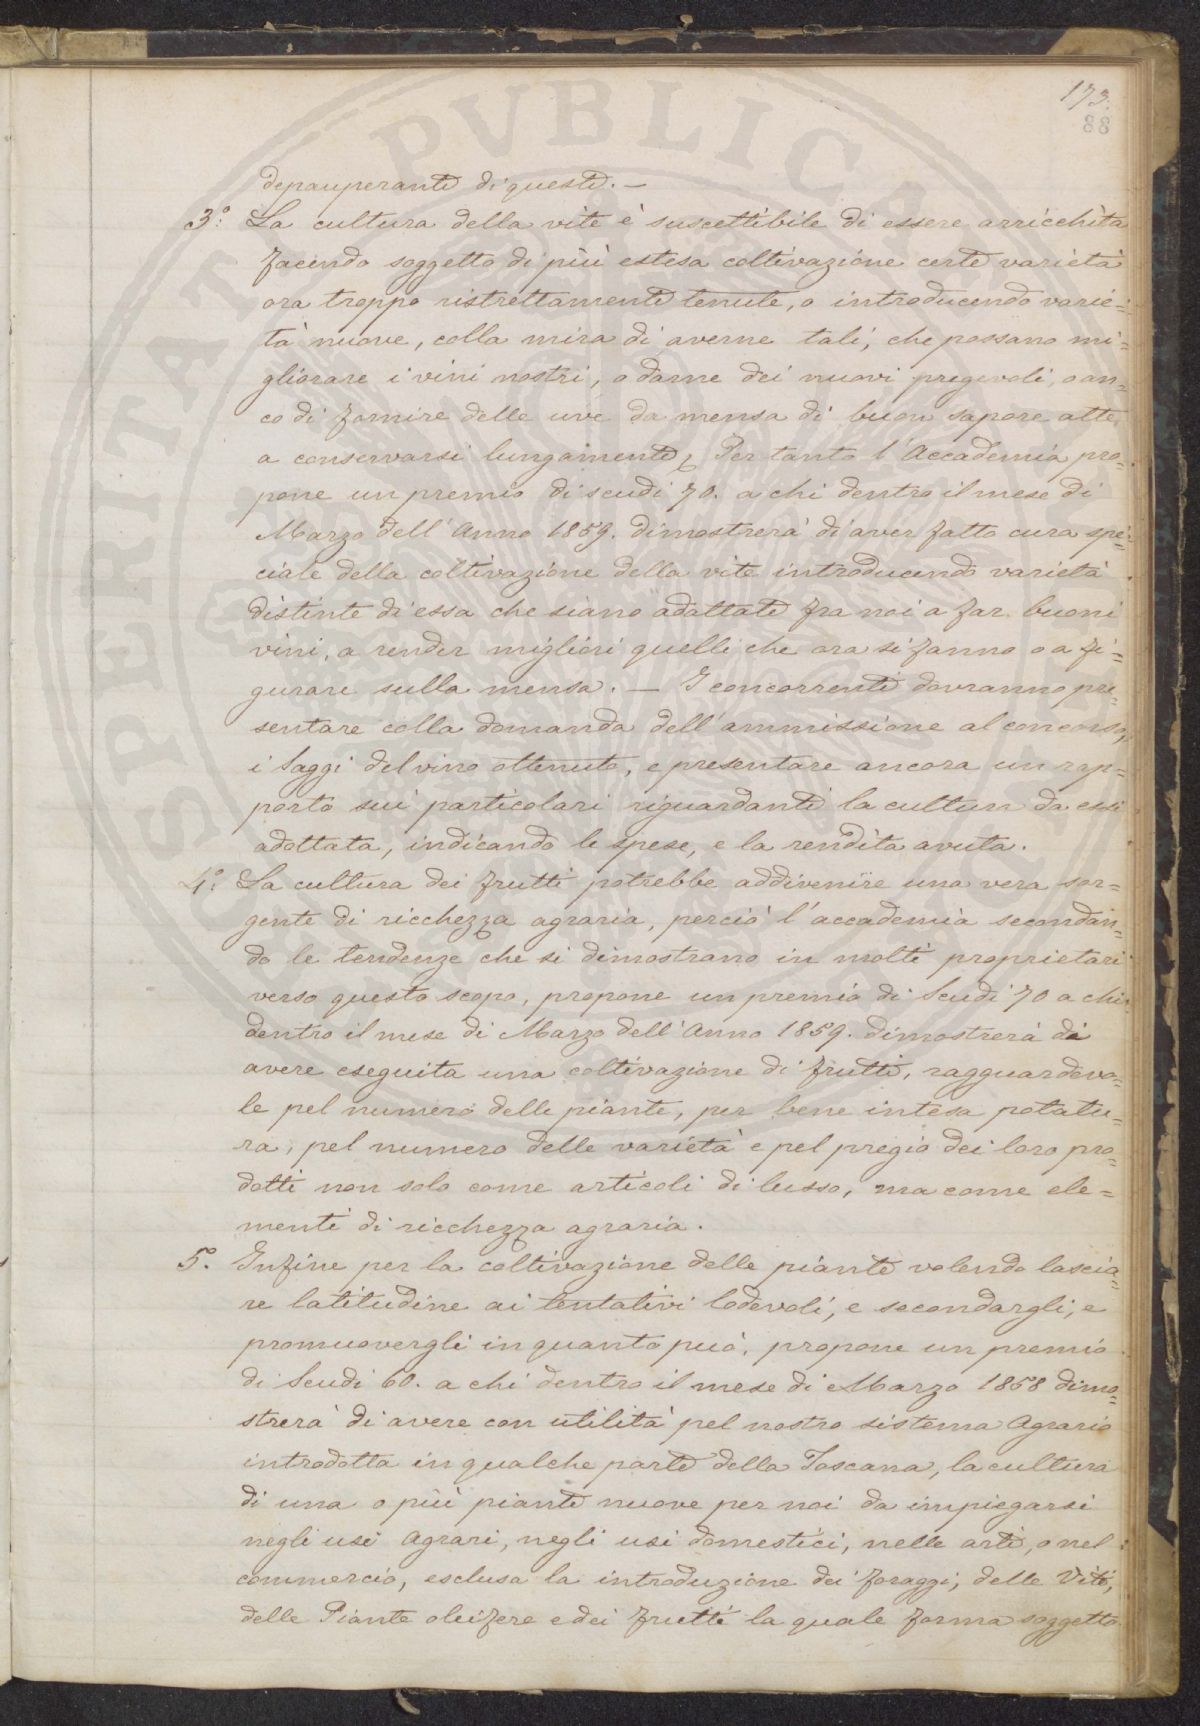 173.
88
depauperante di queste. —
3.° La cultura della vite è suscettibile di essere arricchita
facendo soggetto di più estesa coltivazione certe varietà
ora troppo ristrettamente tenute, o introducendo varie=
tà nuove, colla mira di averne tali, che possano mi=
gliorare i vini nostri, o darne dei nuovi pregevoli, o an=
co di fornire delle uve da mensa di buon sapore atte
a conservarsi lungamente, Per tanto l'Accademia pro=
pone un premio di scudi 70. a chi dentro il mese di
Marzo dell'Anno 1859. dimostrerà di aver fatto cura spe=
ciale della coltivazione della vite introducendo varietà
distinte di essa che siano adattate fra noi a far buoni
vini, a render migliori quelli che ora si fanno o a fi=
gurare sulla mensa. — I concorrenti dovranno pre=
sentare colla domanda dell'ammissione al concorso,
i Saggi del vino ottenuto, e presentare ancora un rap=
porto sui particolari riguardanti la cultura da essi
adottata, indicando le spese, e la rendita avuta.
4.° La cultura dei frutti potrebbe addivenire una vera sor=
gente di ricchezza agraria, perciò l'accademia secondan=
do le tendenze che si dimostrano in molti proprietari
verso questo scopo, propone un premio di Scudi 70 a chi
dentro il mese di Marzo dell'Anno 1859. dimostrerà di
avere eseguita una coltivazione di frutti, ragguardevo=
le pel numero delle piante, per bene intesa potatu=
ra, pel numero delle varietà e pel pregio dei loro pro=
dotti non solo come articoli di lusso, ma come ele=
menti di ricchezza agraria.
5.° Infine per la coltivazione delle piante volendo lascia=
re latitudine ai tentativi lodevoli, e secondargli, e
promuovergli in quanto può, propone un premio
di Scudi 60. a chi dentro il mese di Marzo 1858 dimo=
strerà di avere con utilità pel nostro sistema Agrario
introdotta in qualche parte della Toscana, la cultura
di una o più piante nuove per noi da impiegarsi
negli usi Agrari, negli usi domestici, nelle arti, o nel
commercio, esclusa la introduzione dei foraggi, delle Viti,
delle Piante oleifere e dei frutti la quale forma soggetto